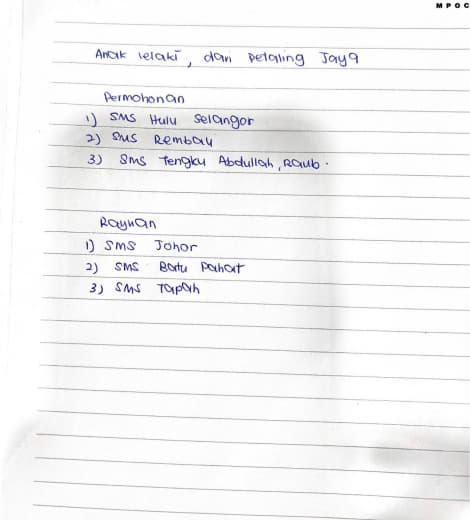 MPOC
Anak lelaki, dari Petaling Jaya
Permohonan
1) SMS Hulu Selangor
2) SMS Rembau
3) SMS Tengku Abdullah, Raub.
Rayuan
1) SMS Johor
2) SMS Batu Pahat
3) SMS Tapah